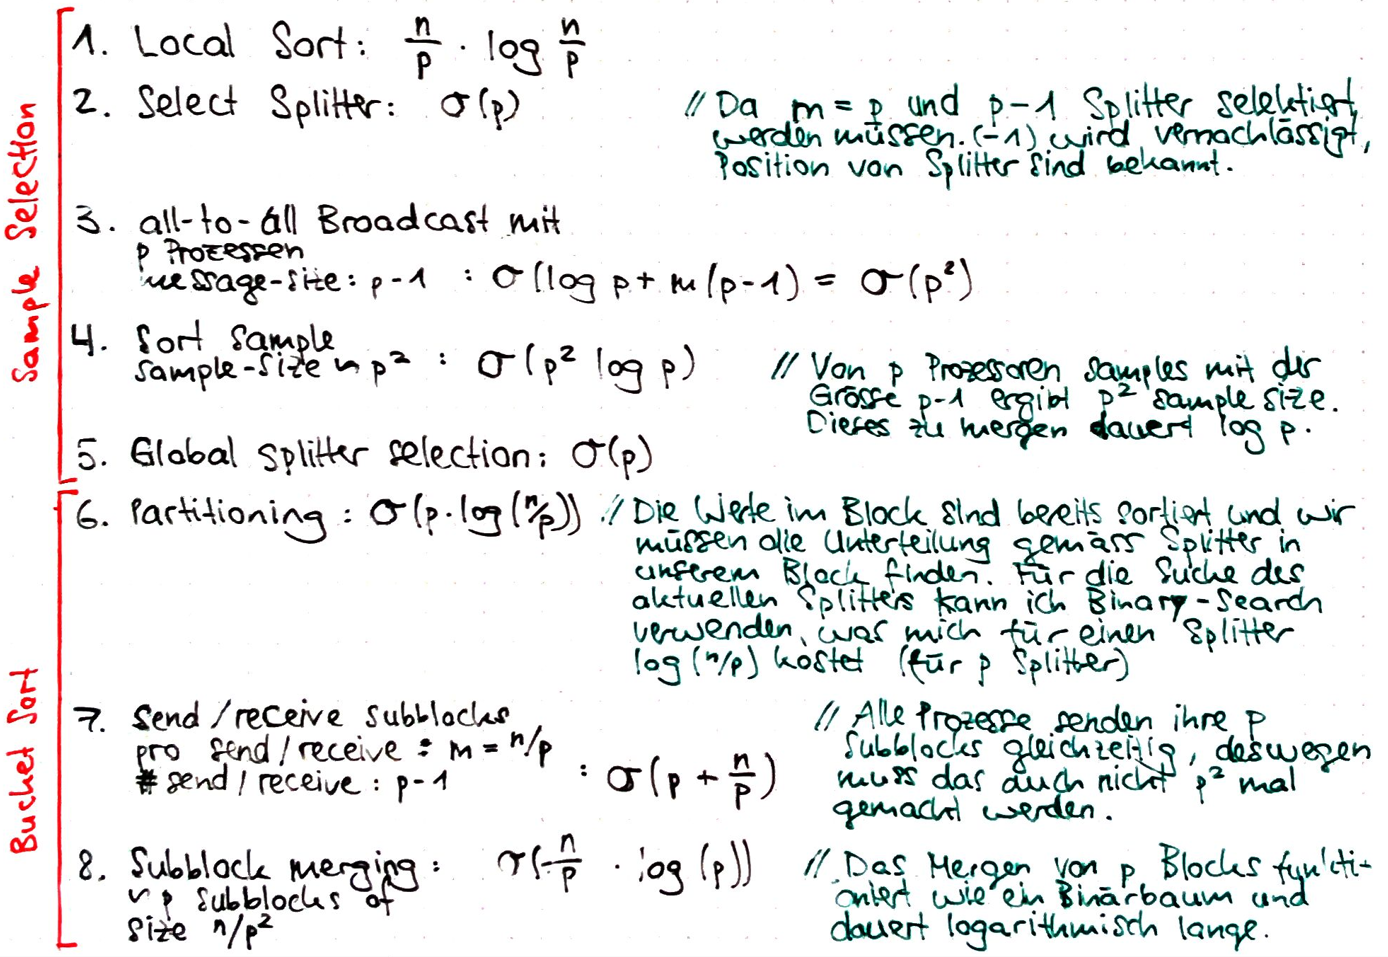 Sample Selection
1. Local Sort: n/p · log n/p
2. Select Splitter: O(p)
// Da m = p und p-1 Splitter selektiert
werden müssen. (-1) wird vernachlässigt,
Position von Splitter sind bekannt.
3. all-to-all Broadcast mit
p Prozessen
message-size: p-1 : O(log p + m(p-1) = O(p²)
4. Sort Sample
sample-size ~ p² : O(p² log p)
// Von p Prozessoren samples mit der
Grösse p-1 ergibt p² sample size.
Dieses zu mergen dauert log p.
5. Global splitter selection: O(p)
Bucket Sort
6. Partitioning : O(p·log(n/p))
// Die Werte im Block sind bereits sortiert und wir
müssen die Unterteilung gemäss Splitter in
unserem Block finden. Für die Suche des
aktuellen Splitters kann ich Binary-Search
verwenden, was mich für einen Splitter
log(n/p) kostet (für p Splitter)
7. Send/receive subblocks
pro send/receive : m = n/p
# send/receive : p-1 : O(p + n/p)
// Alle Prozesse senden ihre p
Subblocks gleichzeitig, deswegen
muss das auch nicht p² mal
gemacht werden.
8. Subblock merging : O(n/p · log(p))
~ p subblocks of
size n/p²
// Das Mergen von p Blocks funkti-
oniert wie ein Binärbaum und
dauert logarithmisch lange.